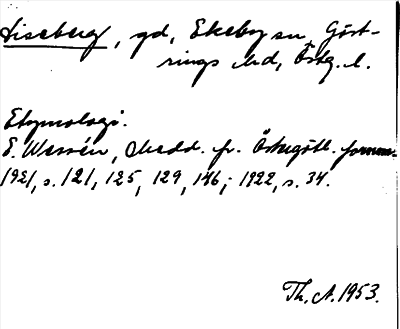 Liseberg, gd, Ekeby sn, Göst-
rings hd, Östg. l.
Etymologi.
E. Wessén, Medd. fr. Östergötl. fornm.
1921, s. 121, 125, 129, 146; 1922, s. 34.
Th. A. 1953.